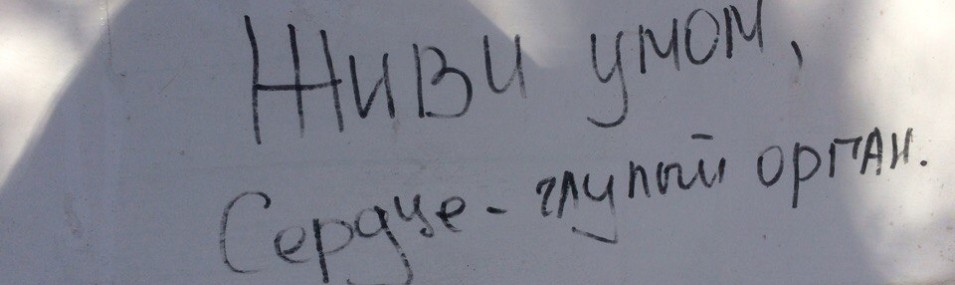 Живи умом,
Сердце - глупый орган.